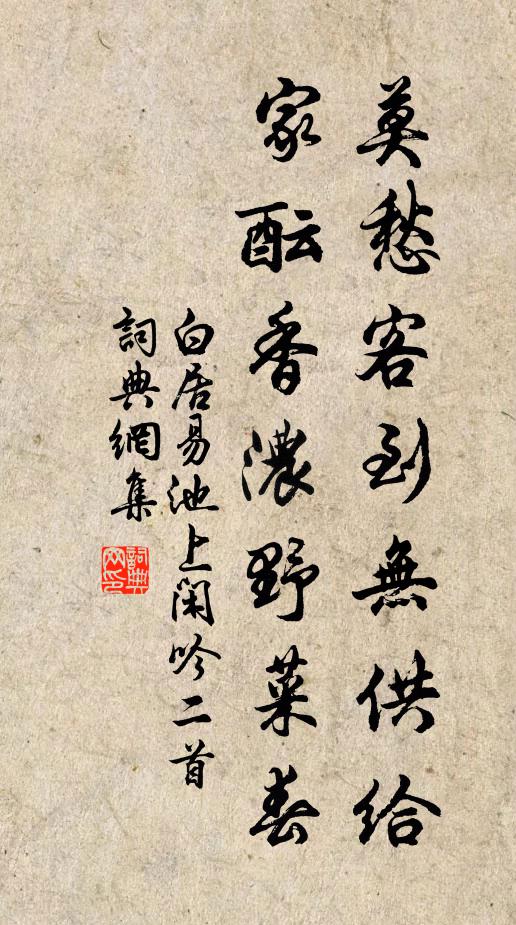 莫愁客到無供給
家酝香濃野菜春
白居易池上闲吟二首
詞典網集
詞典网印